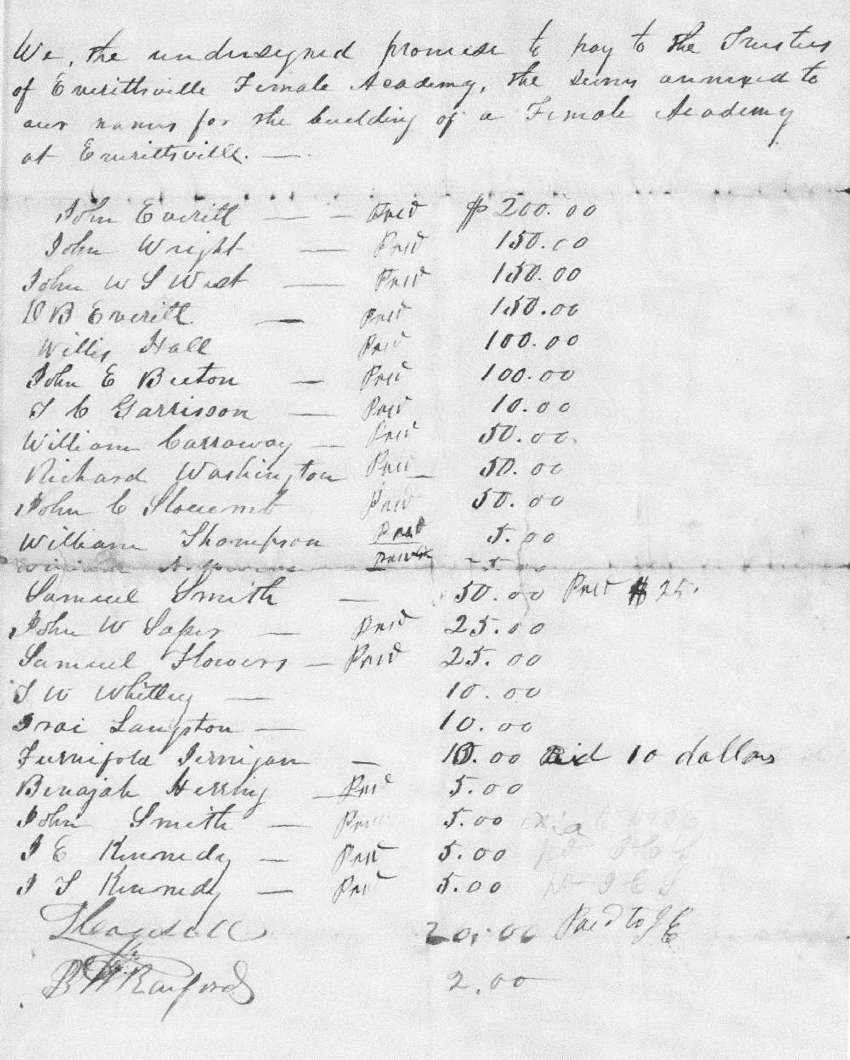 We, the undersigned promise to pay to the Trustees
of Everittsville Female Academy, the sums annexed to
our names for the building of a Female Academy
at Everittsville. —
John Everitt — — Paid $200.00
John Wright — Paid 150.00
John W S West — Paid 150.00
D B Everitt — Paid 150.00
Willis Hall Paid 100.00
John E Becton — Paid 100.00
J C Garrison — Paid 10.00
William Carraway — Paid 50.00
Richard Washington Paid — 50.00
John C Slocumb Paid 50.00
William Thompson Paid 5.00
Paid 5.00
Samuel Smith — 50.00 Paid $25.
John W Saper — Paid 25.00
Samuel Flowers — Paid 25.00
J W Whitley — 10.00
Irai Langston — 10.00
Furnifold Jernigan — 10.00 Paid 10 dollars
Benajah Herring — Paid 5.00
John Smith — Paid 5.00
J E Kennedy — Paid 5.00
J T Kennedy — Paid 5.00
20.00 Paid to J E
B W Raiford 2.00